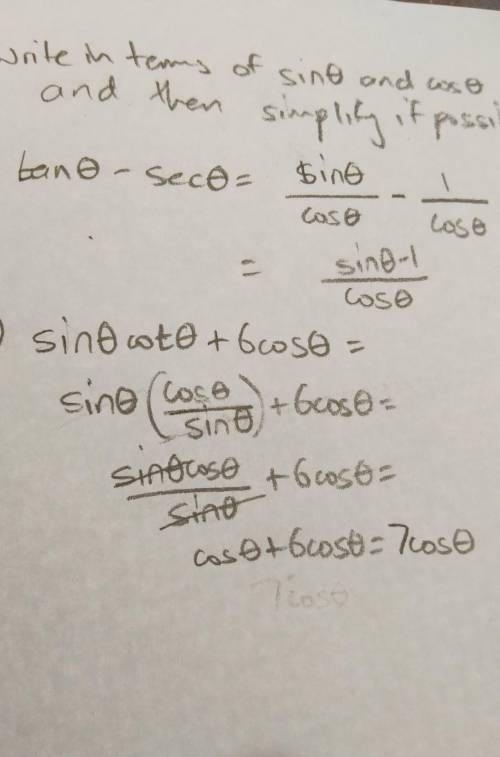 write in terms of sinθ and cosθ
and then simplify if possi
tanθ - secθ = sinθ/cosθ - 1/cosθ
= sinθ-1/cosθ
) sinθcotθ + 6cosθ =
sinθ(cosθ/sinθ) + 6cosθ =
sinθcosθ/sinθ + 6cosθ =
cosθ + 6cosθ = 7cosθ
7cosθ